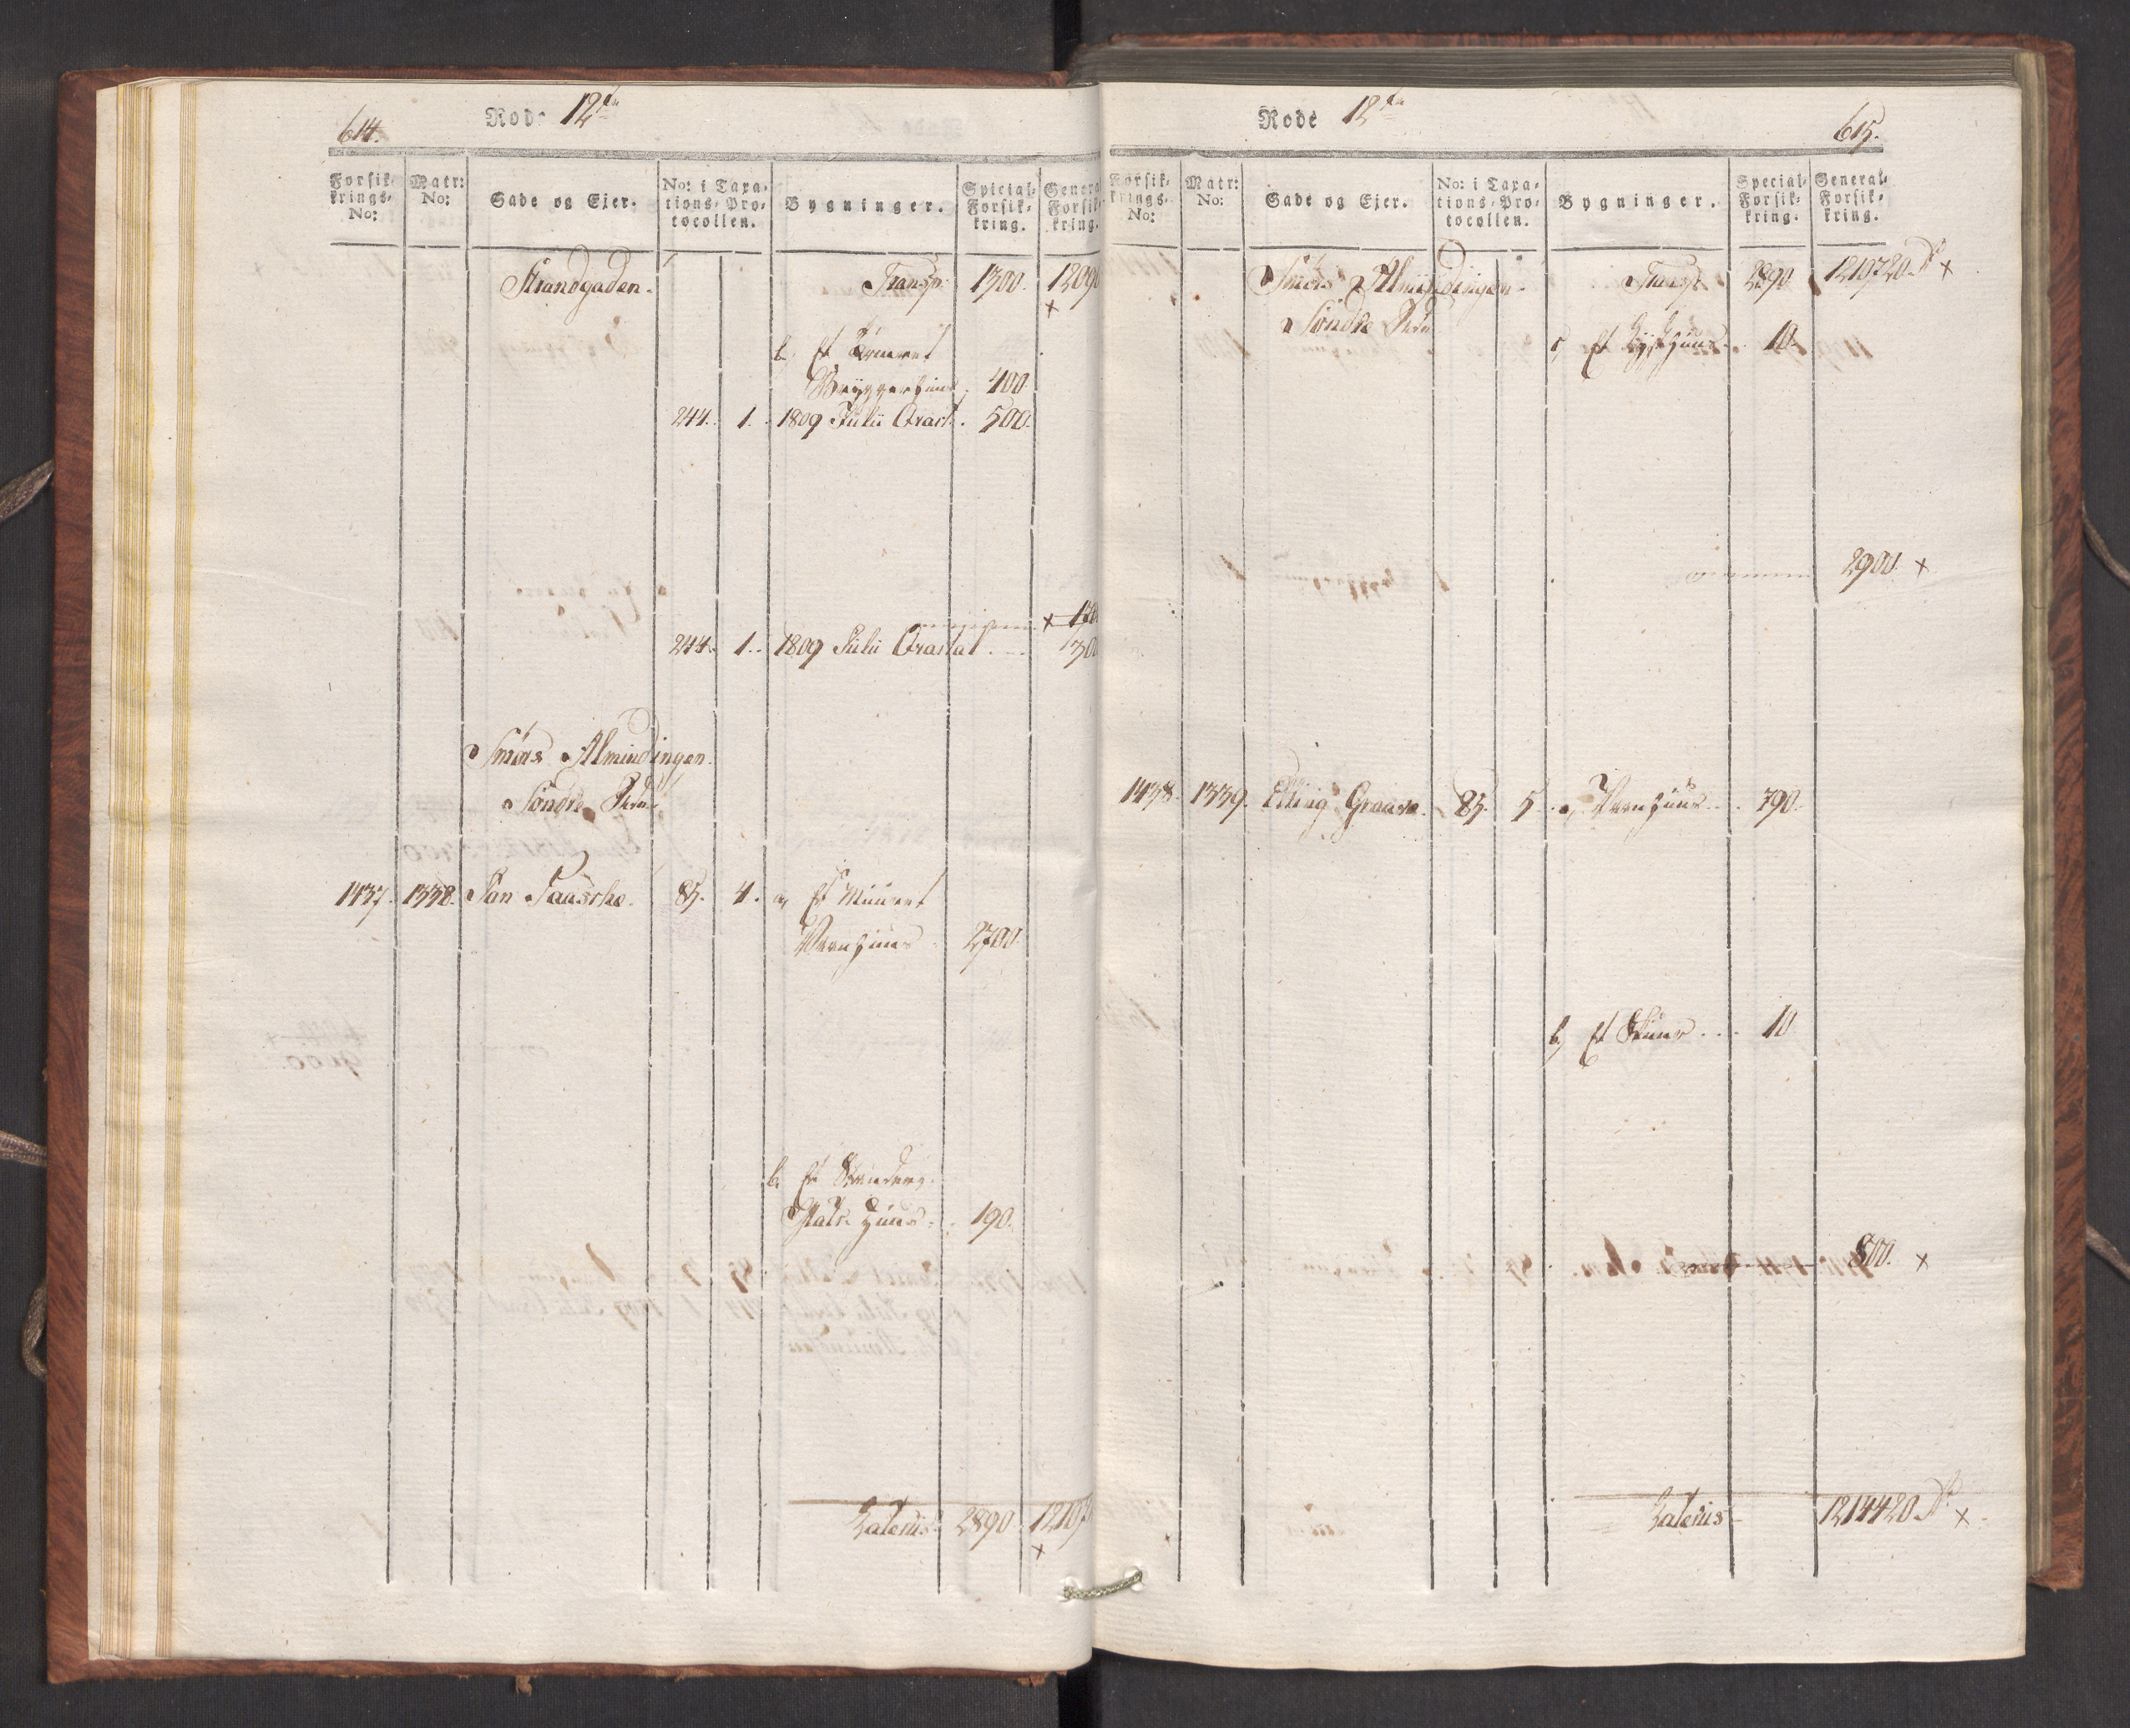 614.
Rode 12te
Forsik-
krings-
No:
Matr:
No:
Gade og Ejer.
No: i Taxa-
tions-Pro-
tocollen.
Bygninger.
Special-
Forsik-
kring.
General
Forsik-
kring.
Strandgaden. Transp: 1300. 12090
×
b, Et
Bryggerhuus, 400.
244. 1. 1809 Julii Qvart. 500.
× 170
244. 1. 1809 Julii Qvartal 130
Smørs Almindingen
Søndre Side
1437. 1338. Jan Paasche. 85. 4. a, Et Muuret
Vaanhuus 2700.
b, Et
huus 190.
Lateris 2890. 12107
×
615.
Rode 12te
Forsik-
krings-
No:
Matr:
No:
Gade og Ejer.
No: i Taxa-
tions-Pro-
tocollen.
Bygninger.
Special-
Forsik-
kring.
General-
Forsik-
kring.
Smørs Almindingen Transp. 2890. 1210720. ×
Søndre Side
c, Et huus 10.
2900. ×
1438. 1339. Elling Graave. 85. 5. a, Vaanhuus 790.
b, Et Skuur 10
800. ×
Lateris 1214420. ×